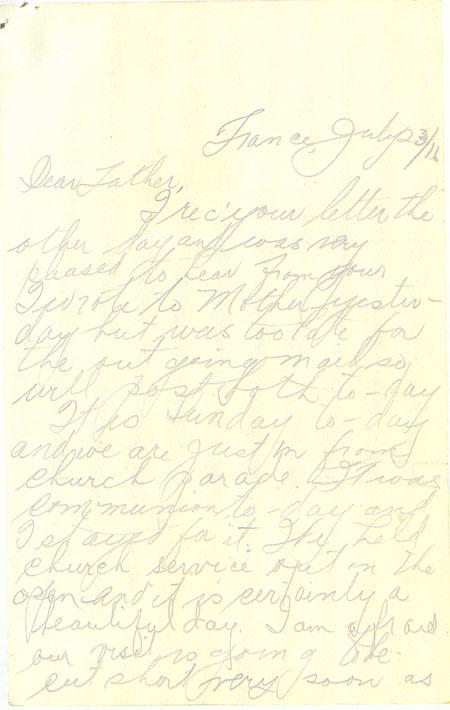 France, July 23/16
Dear Father,
I rec'd your letter the
other day and was very
pleased to hear from you
I wrote to Mother yester-
day but was too late for
the out going mail so
will post both to-day
It is Sunday to-day
and we are just in from
church parade. It was
communion to-day and
I stayed for it. We held
church service out in the
open and it is certainly a
beautiful day. I am afraid
our visit is going to be
cut short very soon as